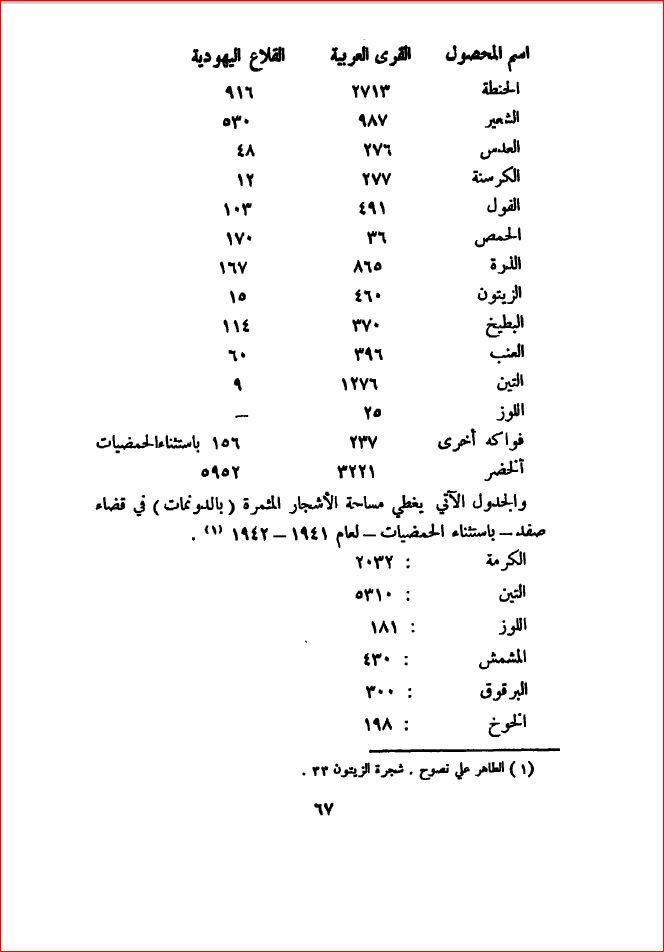 اسم المحصول القرى العربية القلاع اليهودية
الحنطة ٢٧١٣ ٩١٦
الشعير ٩٨٧ ٥٣٠
العدس ٢٧٦ ٤٨
الكرسنة ٢٧٧ ١٢
الفول ٤٩١ ١٠٣
الحمص ٣٦ ١٧٠
الذرة ٨٦٥ ١٦٧
الزيتون ٤٦٠ ١٥
البطيخ ٣٧٠ ١١٤
العنب ٣٩٦ ٦٠
التين ١٢٧٦ ٩
اللوز ٢٥ —
فواكه أخرى ٢٣٧ ١٥٦ باستثناءالحمضيات
الخضر ٣٢٢١ ٥٩٥٢
والجدول الآتي يغطي مساحة الأشجار المثمرة (بالدونمات) في قضاء
صفد — باستثناء الحمضيات — لعام ١٩٤١ — ١٩٤٢ (١) .
الكرمة : ٢٠٣٢
التين : ٥٣١٠
اللوز : ١٨١
المشمش : ٤٣٠
البرقوق : ٣٠٠
الخوخ : ١٩٨
(١) الطاهر علي نصوح . شجرة الزيتون ٣٣ .
٦٧